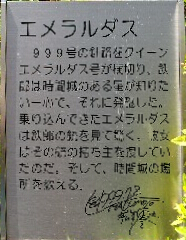 エメラルダス
999号の針路をクイーン
エメラルダス号が横切り、鉄
郎は時間城のある星が知りた
い一心で、それに発砲した。
乗り込んできたエメラルダス
は鉄郎の銃を見て驚く。彼女
はその銃の持ち主を捜してい
たのだ。そして、時間城の場
所を教える。